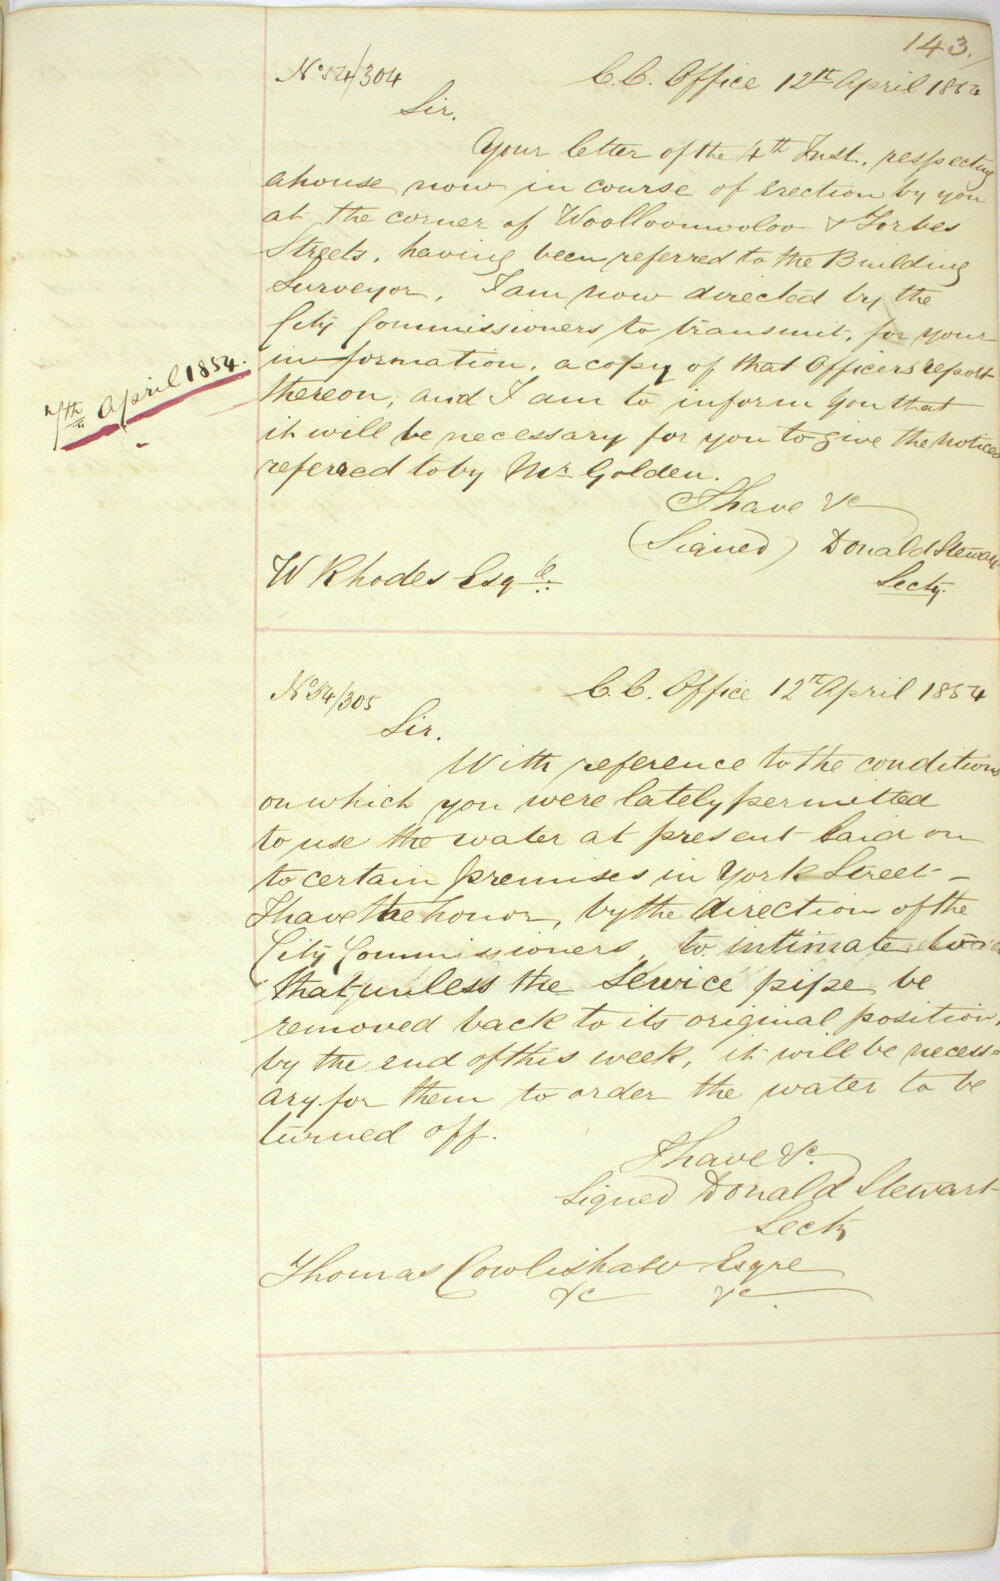 143.
No 54/304 C. C. Office 12th April 1854
Sir.
Your letter of the 4th Inst. respecting
a house now in course of Erection by you
at the corner of Woolloomooloo & Forbes
Streets, having been referred to the Building
Surveyor, I am now directed by the
City Commissioners to transmit, for your
information, a copy of that Officers report
7th April 1854.
thereon, and I am to inform you that
it will be necessary for you to give the notices
referred to by Mr Golden.
I have &c
(Signed) Donald Stewart
Secty.
W Rhodes Esqre
No 54/305 C. C. Office 12th April 1854
Sir.
With reference to the conditions
on which you were lately permitted
to use the water at present laid on
to certain premises in York Street—
I have the honor, by the direction of the
City Commissioners, to intimate
that unless the Service pipe be
removed back to its original position,
by the end of this week, it will be necess=
ary for them to order the water to be
turned off.
I have &c.
Signed Donald Stewart
Secty
Thomas Cowlishaw Esqre
&c &c